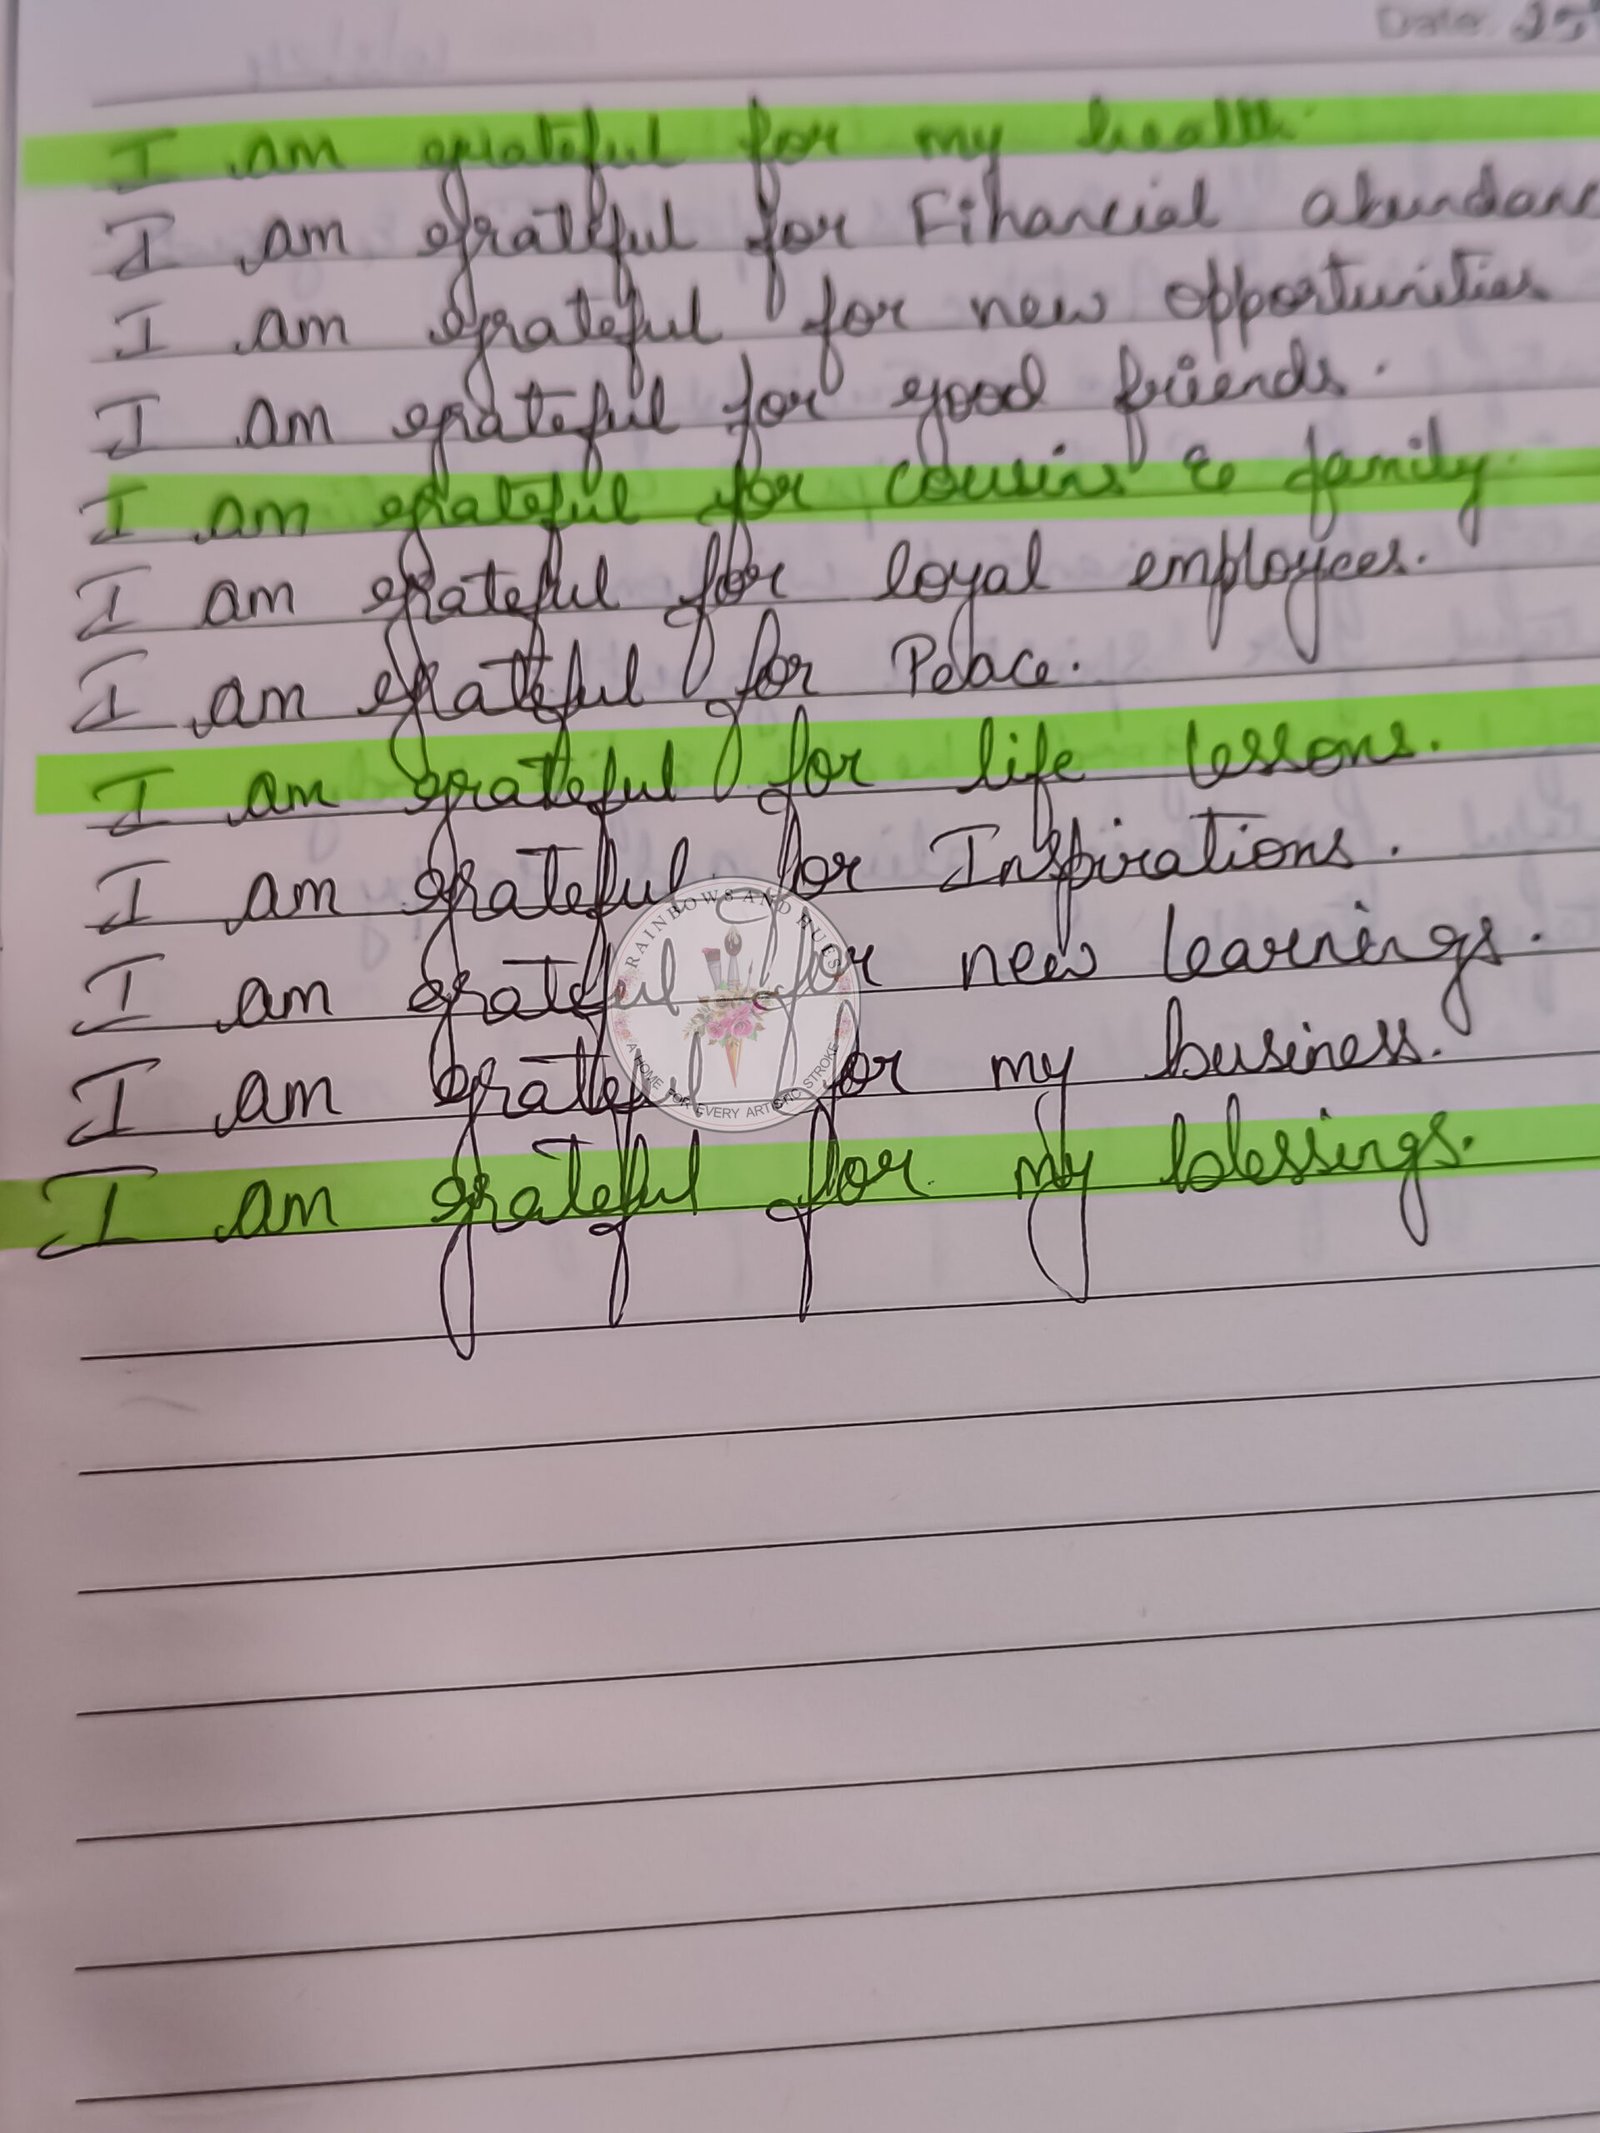 Date: 25
I am grateful for my health.
I am grateful for Financial abundanc
I am grateful for new opportunities
I am grateful for good friends.
I am grateful for cousins & family.
I am grateful for loyal employees.
I am grateful for Peace.
I am grateful for life lessons.
I am grateful for Inspirations.
I am grateful for new learnings.
I am grateful for my business.
I am grateful for my blessings.
RAINBOWS AND HUES
A HOME FOR EVERY ARTISTIC STROKE